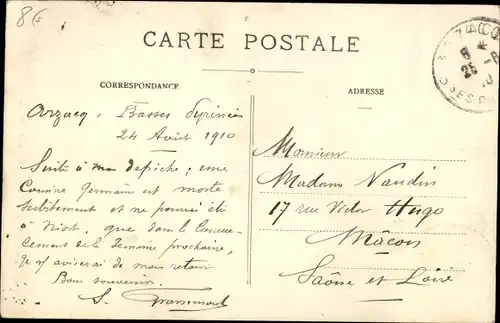 86
CARTE POSTALE
CORRESPONDANCE
ADRESSE
Arzacq, Basses Pyrénées
24 Août 1910
Suite à ma dépêche ; une
Cousine Germaine est morte
subitement et ne pourrai être
à Niort, que dans le Commen-
cement de la Semaine prochaine,
Je vs aviserai de mon retour
Bon souvenir.
S.
Monsieur
Madame Naudin
17 rue Victor Hugo
Mâcon
Saône et Loire